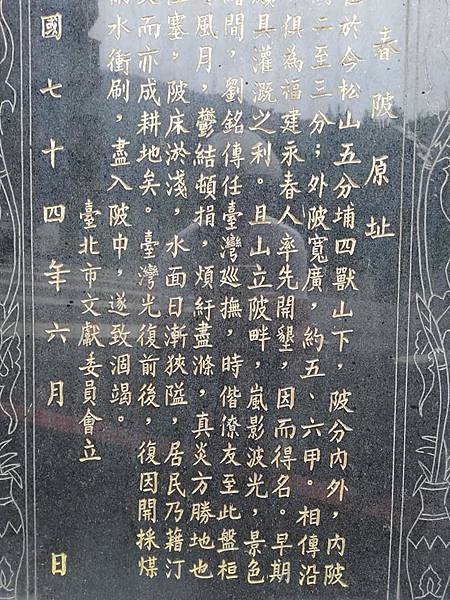 春陂原址
於今松山五分埔四獸山下，陂分內外，內陂
二至三分；外陂寬廣，約五、六甲。相傳沿
俱為福建永春人率先開墾，因而得名。早期
具灌溉之利。且山立陂畔，嵐影波光，景色
間，劉銘傳任臺灣巡撫，時偕僚友至此盤桓
風月，鬱結頓捐，煩紆盡滌，真炎方勝地也
塞，陂床淤淺，水面日漸狹隘，居民乃藉汀
而亦成耕地矣。臺灣光復前後，復因開採煤
水衝刷，盡入陂中，遂致涸竭。
臺北市文獻委員會立
國七十四年六月　日